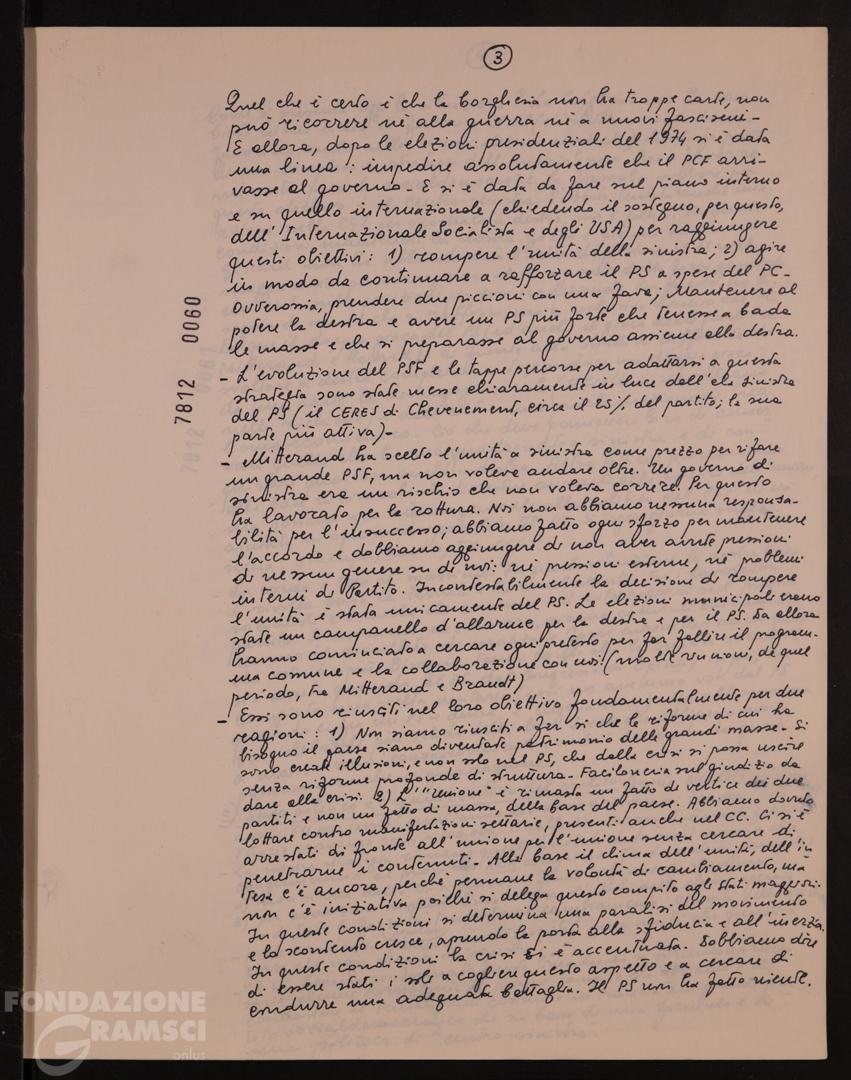 3
Quel che è certo è che la borghesia non ha troppe carte, non
può ricorrere nè alla guerra nè a nuovi fascismi-
E allora, dopo le elezioni presidenziali del 1974 si è data
una linea: impedire assolutamente che il PCF arri-
vasse al governo- E si è data da fare sul piano interno
e su quello internazionale (chiedendo il sostegno, per questo,
dell'Internazionale Socialista e degli USA) per raggiungere
questi obiettivi: 1) rompere l'unità della sinistra; 2) agire
in modo da continuare a rafforzare il PS a spese del PC-
Ovverossia, prendere due piccioni con una fava; Mantenere al
potere la destra e avere un PS più forte che tenesse a bada
le masse e che si preparasse al governo assieme alla destra.
- L'evoluzione del PSF e le tappe percorse per adattarsi a questa
strategia sono state messe chiaramente in luce dall'ala sinistra
del PS (il CERES di Chevenement, circa il 25% del partito; la sua
parte più attiva)-
- Mitterand ha scelto l'unità a sinistra come prezzo per rifare
un grande PSF, ma non voleva andare oltre. Un governo di
sinistra era un rischio che non voleva correre. Per questo
ha lavorato per la rottura. Noi non abbiamo nessuna responsa-
bilità per l'insuccesso; abbiamo fatto ogni sforzo per mantenere
l'accordo e dobbiamo aggiungere di non aver avute pressioni
di nessun genere su di noi: nè pressioni esterne, nè problemi
interni di Partito. Incontestabilmente la decisione di rompere
l'unità è stata unicamente del PS. Le elezioni municipali erano
state un campanello d'allarme per la destra e per il PS. Da allora
hanno cominciato a cercare ogni pretesto per far fallire il program-
ma comune e la collaborazione con noi! (molte riunioni, di quel
periodo, tra Mitterand e Brandt)
- Essi sono riusciti nel loro obiettivo fondamentalmente per due
ragioni: 1) Non siamo riusciti a far sì che le riforme di cui ha
bisogno il paese siano diventate patrimonio delle grandi masse- Si
sono create illusioni, e non solo nel PS, che dalla crisi si possa uscire
senza riforme profonde di struttura- Faciloneria sul giudizio da
dare alla crisi. 2) L'"Unione" è rimasta un fatto di vertice dei due
partiti e non un fatto di massa, della base del paese. Abbiamo dovuto
lottare contro manifestazioni settarie, presenti anche nel CC. Ci si è
arrestati di fronte all'unione per l'unione senza cercare di
penetrarne i contenuti- Alla base il clima dell'unità, dell'in
tesa c'è ancora, perchè permane la volontà di cambiamento, ma
non c'è iniziativa poichè si delega questo compito agli stati maggiori.
In queste condizioni si determina una paralisi del movimento
e lo scontento cresce, aprendo la porta alla sfiducia e all'inerzia.
In queste condizioni la crisi si è accentuata. Dobbiamo dire
di essere stati i soli a cogliere questo aspetto e a cercare di
condurre una adeguata battaglia. Il PS non ha fatto niente.
7812 0060
FONDAZIONE
GRAMSCI
onlus